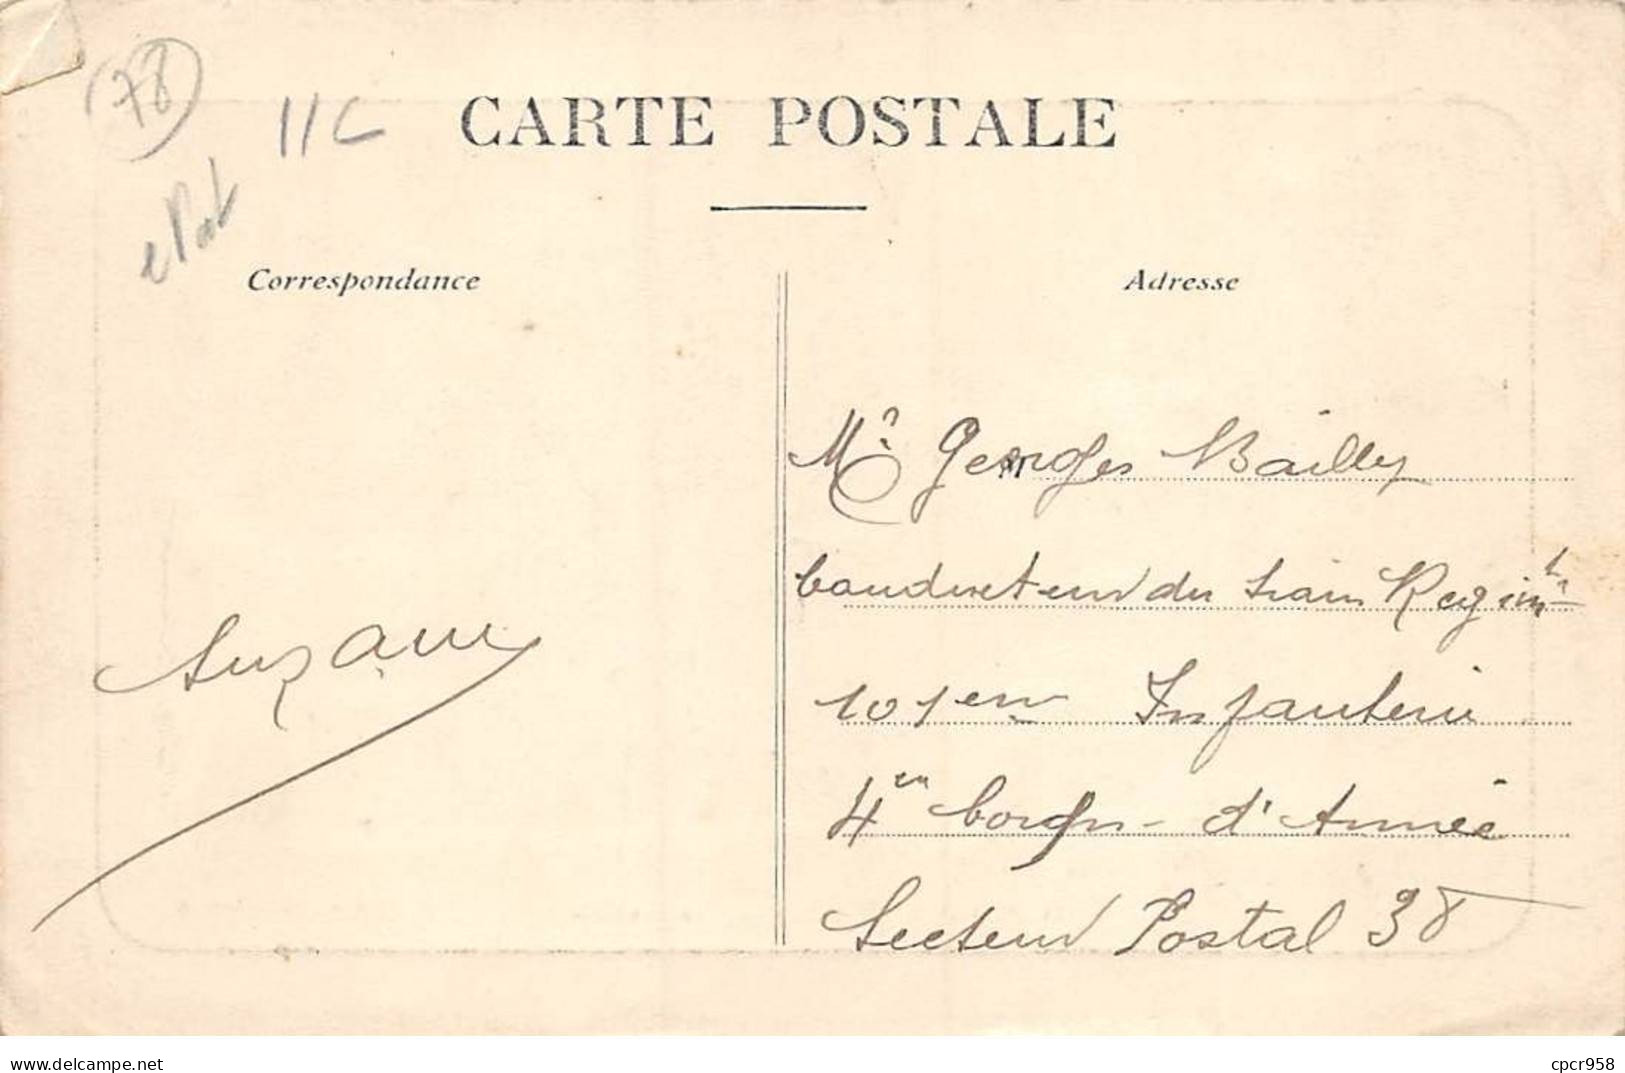 78
11C
etat
CARTE POSTALE
Correspondance
Adresse
Suzanne
Mr Georges Bailly
Conducteur du train Regimt
101em Infanterie
4em Corps d'Armée
Secteur Postal 38
www.delcampe.net
cpcr958